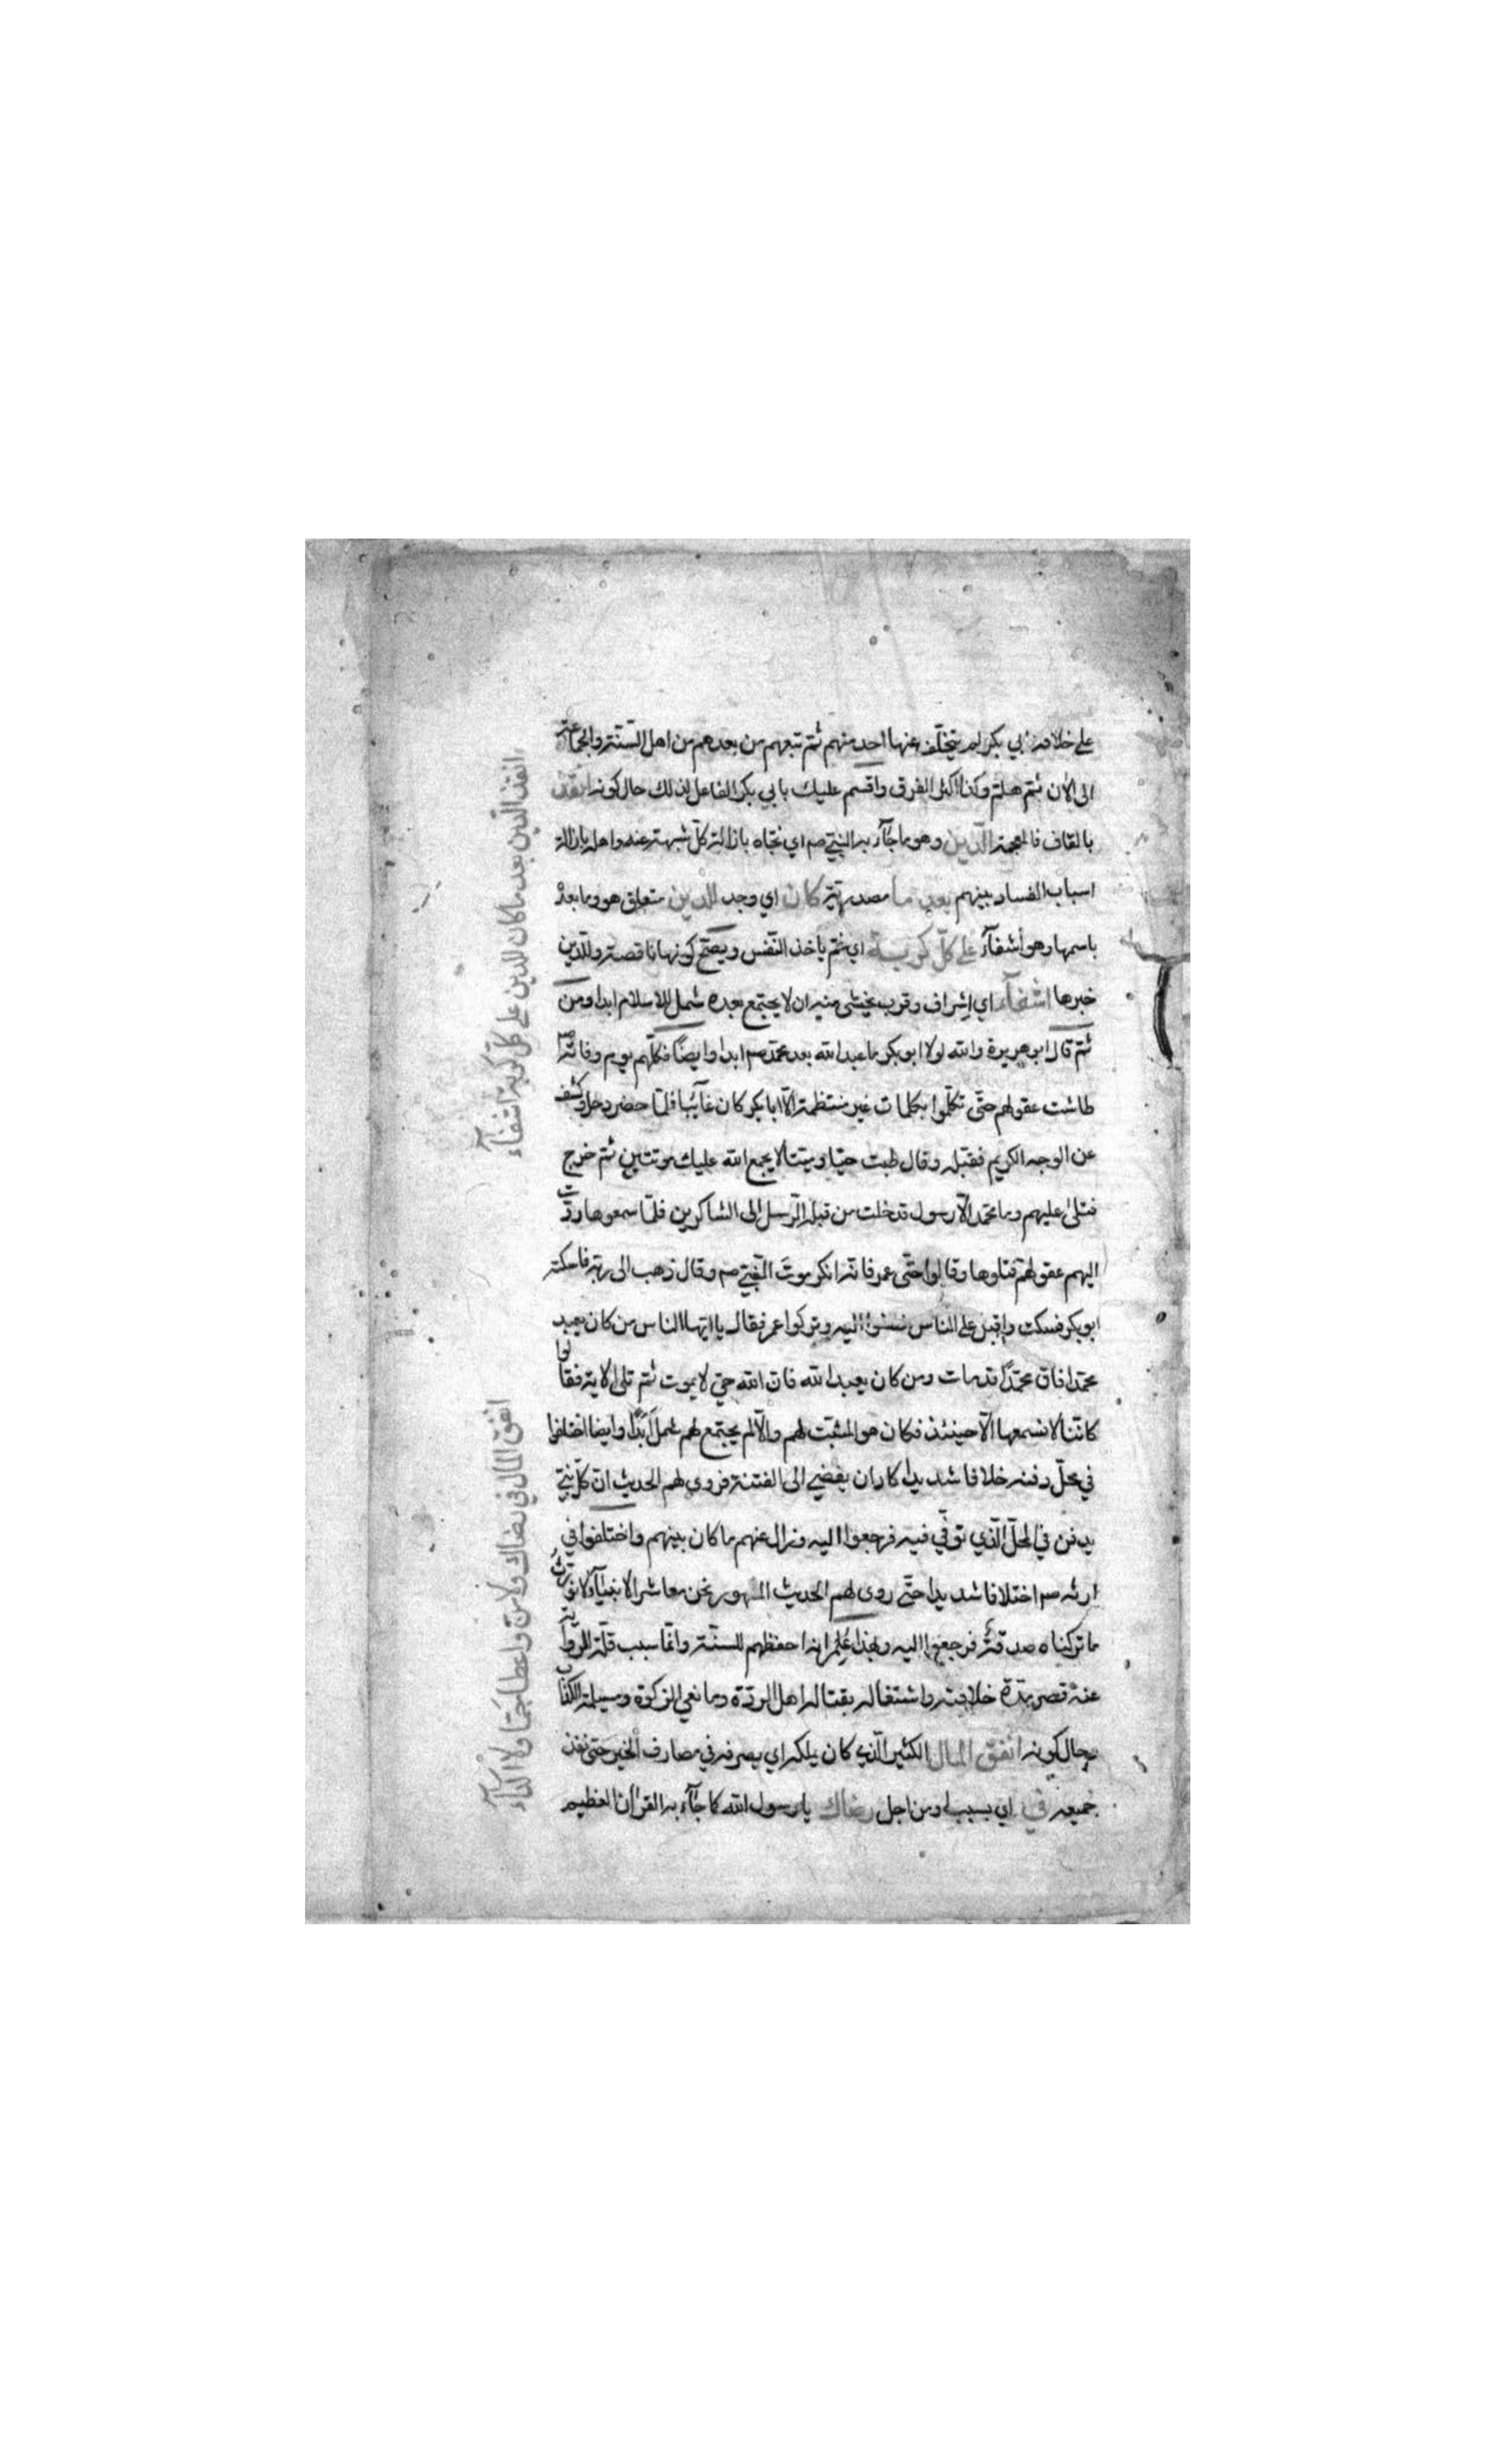 على خلافة ابي بكر لم يتخلف عنها احد منهم ثم تبعهم من بعدهم من اهل السنة والجماعة
الى الان ثم هلم وكذا اكثر الفرق واقسم عليك بابي بكر الفاعل لذلك حال كونه انقذ
بالقاف فالمعجمة الدين وهو ما جآء به النبي صم اي نجاه بازالة كل شبهة عنه واهله بازالة
اسباب الفساد بينهم بعد ما مصدرية كان اي وجد للدين متعلق هو وما بعده
باسمها وهو اشفآء على كل كربة اي غم ياخذ النفس ويصح كونها ناقصة وللدين
خبرها اشفآء اي اشراف وقرب يخشى منه ان لا يجتمع بعده شمل للاسلام ابدا ومن
ثم قال ابو هريرة والله لولا ابو بكر ما عبد الله بعد محمد صم ابدا وايضًا فكلهم يوم وفاته صم
طاشت عقولهم حتى تكلموا بكلمات غير منتظمة الا ابا بكر كان غآئبا فلما حضر دخل وكشف
عن الوجه الكريم فقبله وقال طبت حيا وميتا لا يجمع الله عليك موتتين ثم خرج
فتلى عليهم وما محمد الا رسول قد خلت من قبله الرسل الى الشاكرين فلما سمعوها ردت
اليهم عقولهم فتلوها وقالوا حتى عمر فانه انكر موت النبي صم وقال ذهب الى ربه فاسكته
ابو بكر فسكت واقبل على الناس اليه وتركوا عمر فقال يا ايها الناس من كان يعبد
محمدا فان محمدًا قد مات ومن كان يعبد الله فان الله حي لا يموت ثم تلى الاية فقالوا
كاننا لا نسمعها الا حينئذ فكان هو المثبت لهم والا لم يجتمع لهم شمل ابدًا وايضا اختلفوا
في محل دفنه خلافا شديدا كاد ان يفضي الى الفتنة فروى لهم الحديث ان كل نبي
يدفن في المحل الذي توفي فيه فرجعوا اليه وزال عنهم ما كان بينهم واختلفوا في
ارثه صم اختلافا شديدا حتى روى لهم الحديث المشهور نحن معاشر الانبيآء لا نورث
ما تركناه صدقة فرجعوا اليه وبهذا علم انه احفظهم للسنة وانما سبب قلة الرواية
عنه قصر مدة خلافته واشتغاله بقتاله اهل الردة ومانعي الزكوة ومسيلمة الكذاب
وحال كونه انفق المال الكثير الذي كان يملكه اي يصرفه في مصارف الخير حتى نفذ
جميعه في اي بسبب او من اجل رضاك يا رسول الله كما جآء به القرآن العظيم
انقذ الدين بعد ما كان للدين على كل كربة اشفآء
انفق المال في رضاك ولا من واعطا جما ولا اكدآء